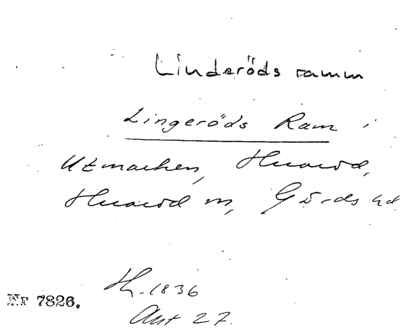 Linderöds ramm
Lingeröds Ram i
Utmarken, Huaröd,
Huaröd m, Gärds hd
H. 1836
Akt 27.
Nr 7826.